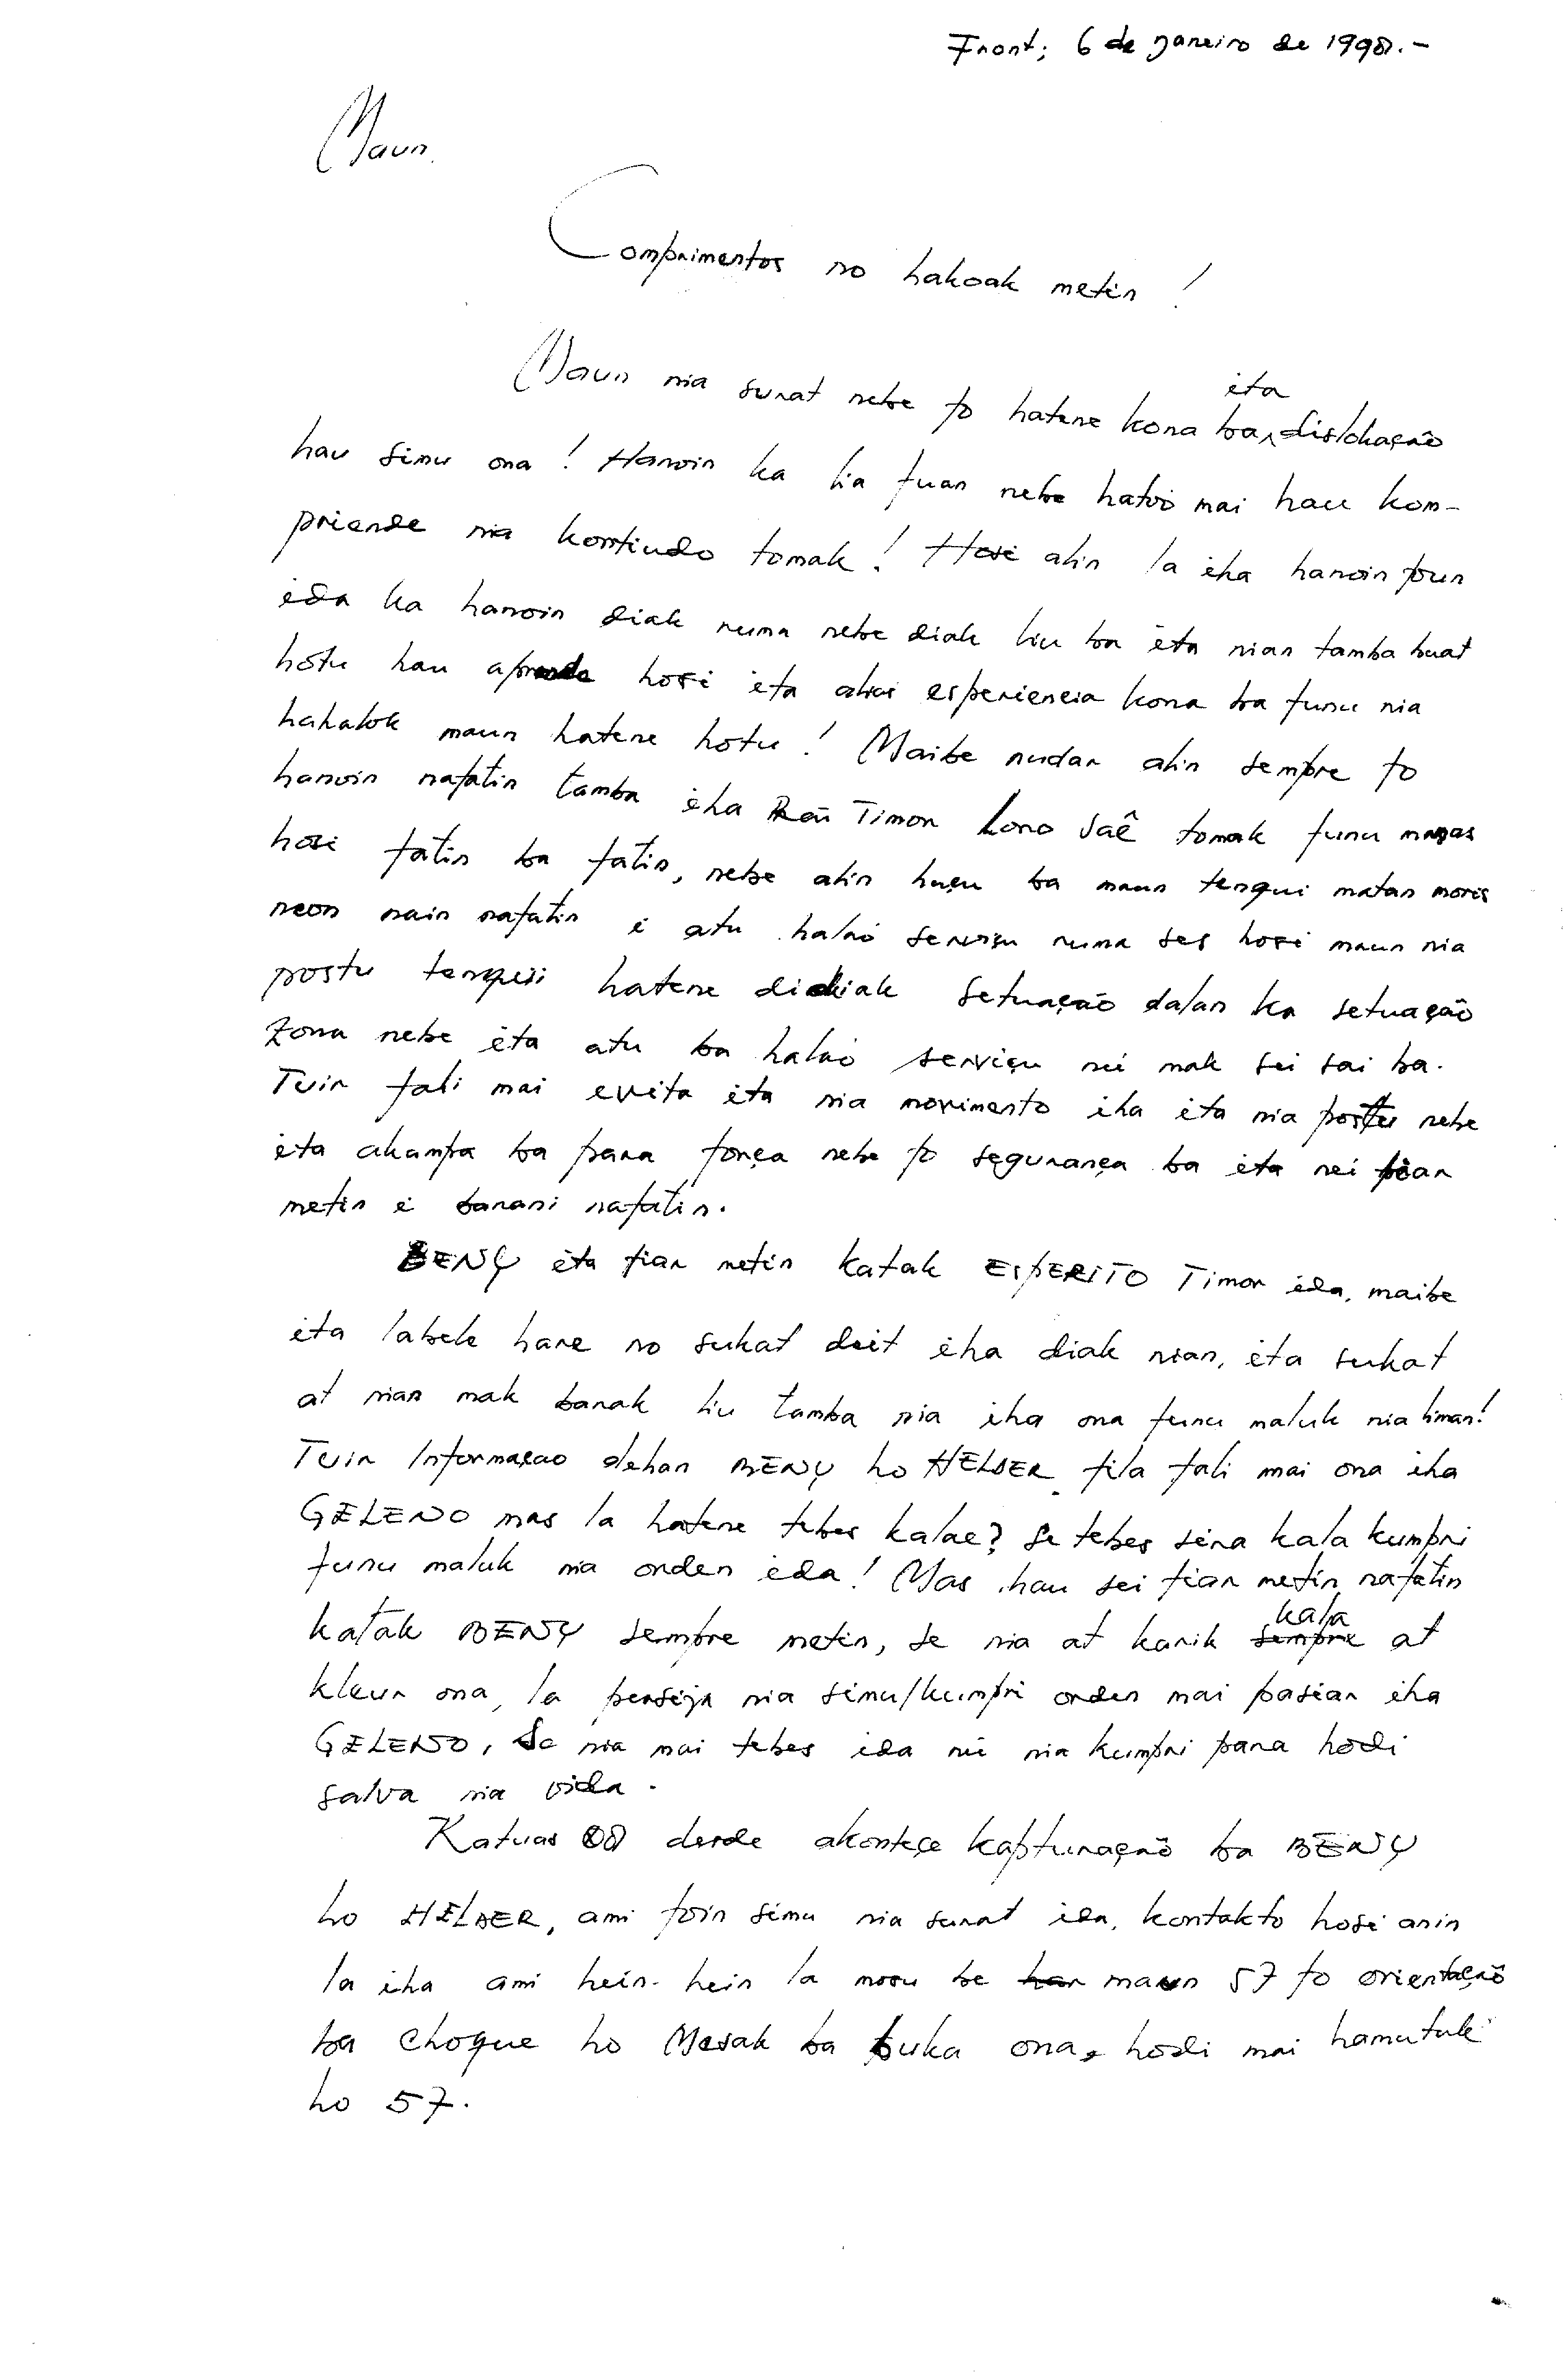 Front; 6 de janeiro de 1998.-
Maun
Comprimentos no hakoak metin !
Maun nia surat nebe fo hatene kona ba èta dislokação
hau simu ona ! Hanoin ka lia fuan nebe hatoo mai hau kom-
priende nia kontiudo tomak ! Hosi alin la iha hanoin foun
ida ka hanoin diak ruma nebe diak liu ba èta nian tamba buat
hotu hau aprende hosi èta alias esperiencia kona ba funu nia
hahalok maun hatene hotu ! Maibe nudar alin sempre fo
hanoin nafatin tamba iha Rai Timor Loro Saê tomak funu manas
hosi fatin ba fatin, nebe alin huçu ba maun tenqui matan moris
neon nain nafatin i atu halao serviçu ruma ses hosi maun nia
postu tenqui hatene didiak setuação dalan ka setuação
zona nebe èta atu ba halao serviçu né mak sei sai ba.
Tuir fali mai evita èta nia movimento iha èta nia postu nebe
èta akampa ba para força nebe fo segurança ba èta nei fiar
metin i barani nafatin.
BENY èta fiar metin katak EspERITO Timor ida, maibe
èta labele hare no sukat deit iha diak nian, èta sukat
at nian mak barak liu tamba nia iha ona funu maluk nia liman!
Tuir Informaçao dehan BENY ho HELDER fila fali mai ona iha
GELENO mas la hatene tebes kalae? Se tebes sira kala kumpri
funu maluk nia orden ida! Mas hau sei fiar metin nafatin
katak BENY sempre metin, se nia at karik kala at
kleur ona, la persija nia simu/kumpri orden mai pasiar iha
GELENO, Se nia mai tebes ida né nia kumpri para hodi
salva nia vida.
Katuas 08 desde akonteçe kapturação ba BENY
ho HELDER, ami foin simu nia surat ida, kontakto hosi anin
la iha ami hein-hein la mosu be maun 57 fo orientação
ba Choque ho Mesak ba buka ona, hodi mai hamutuk
ho 57.